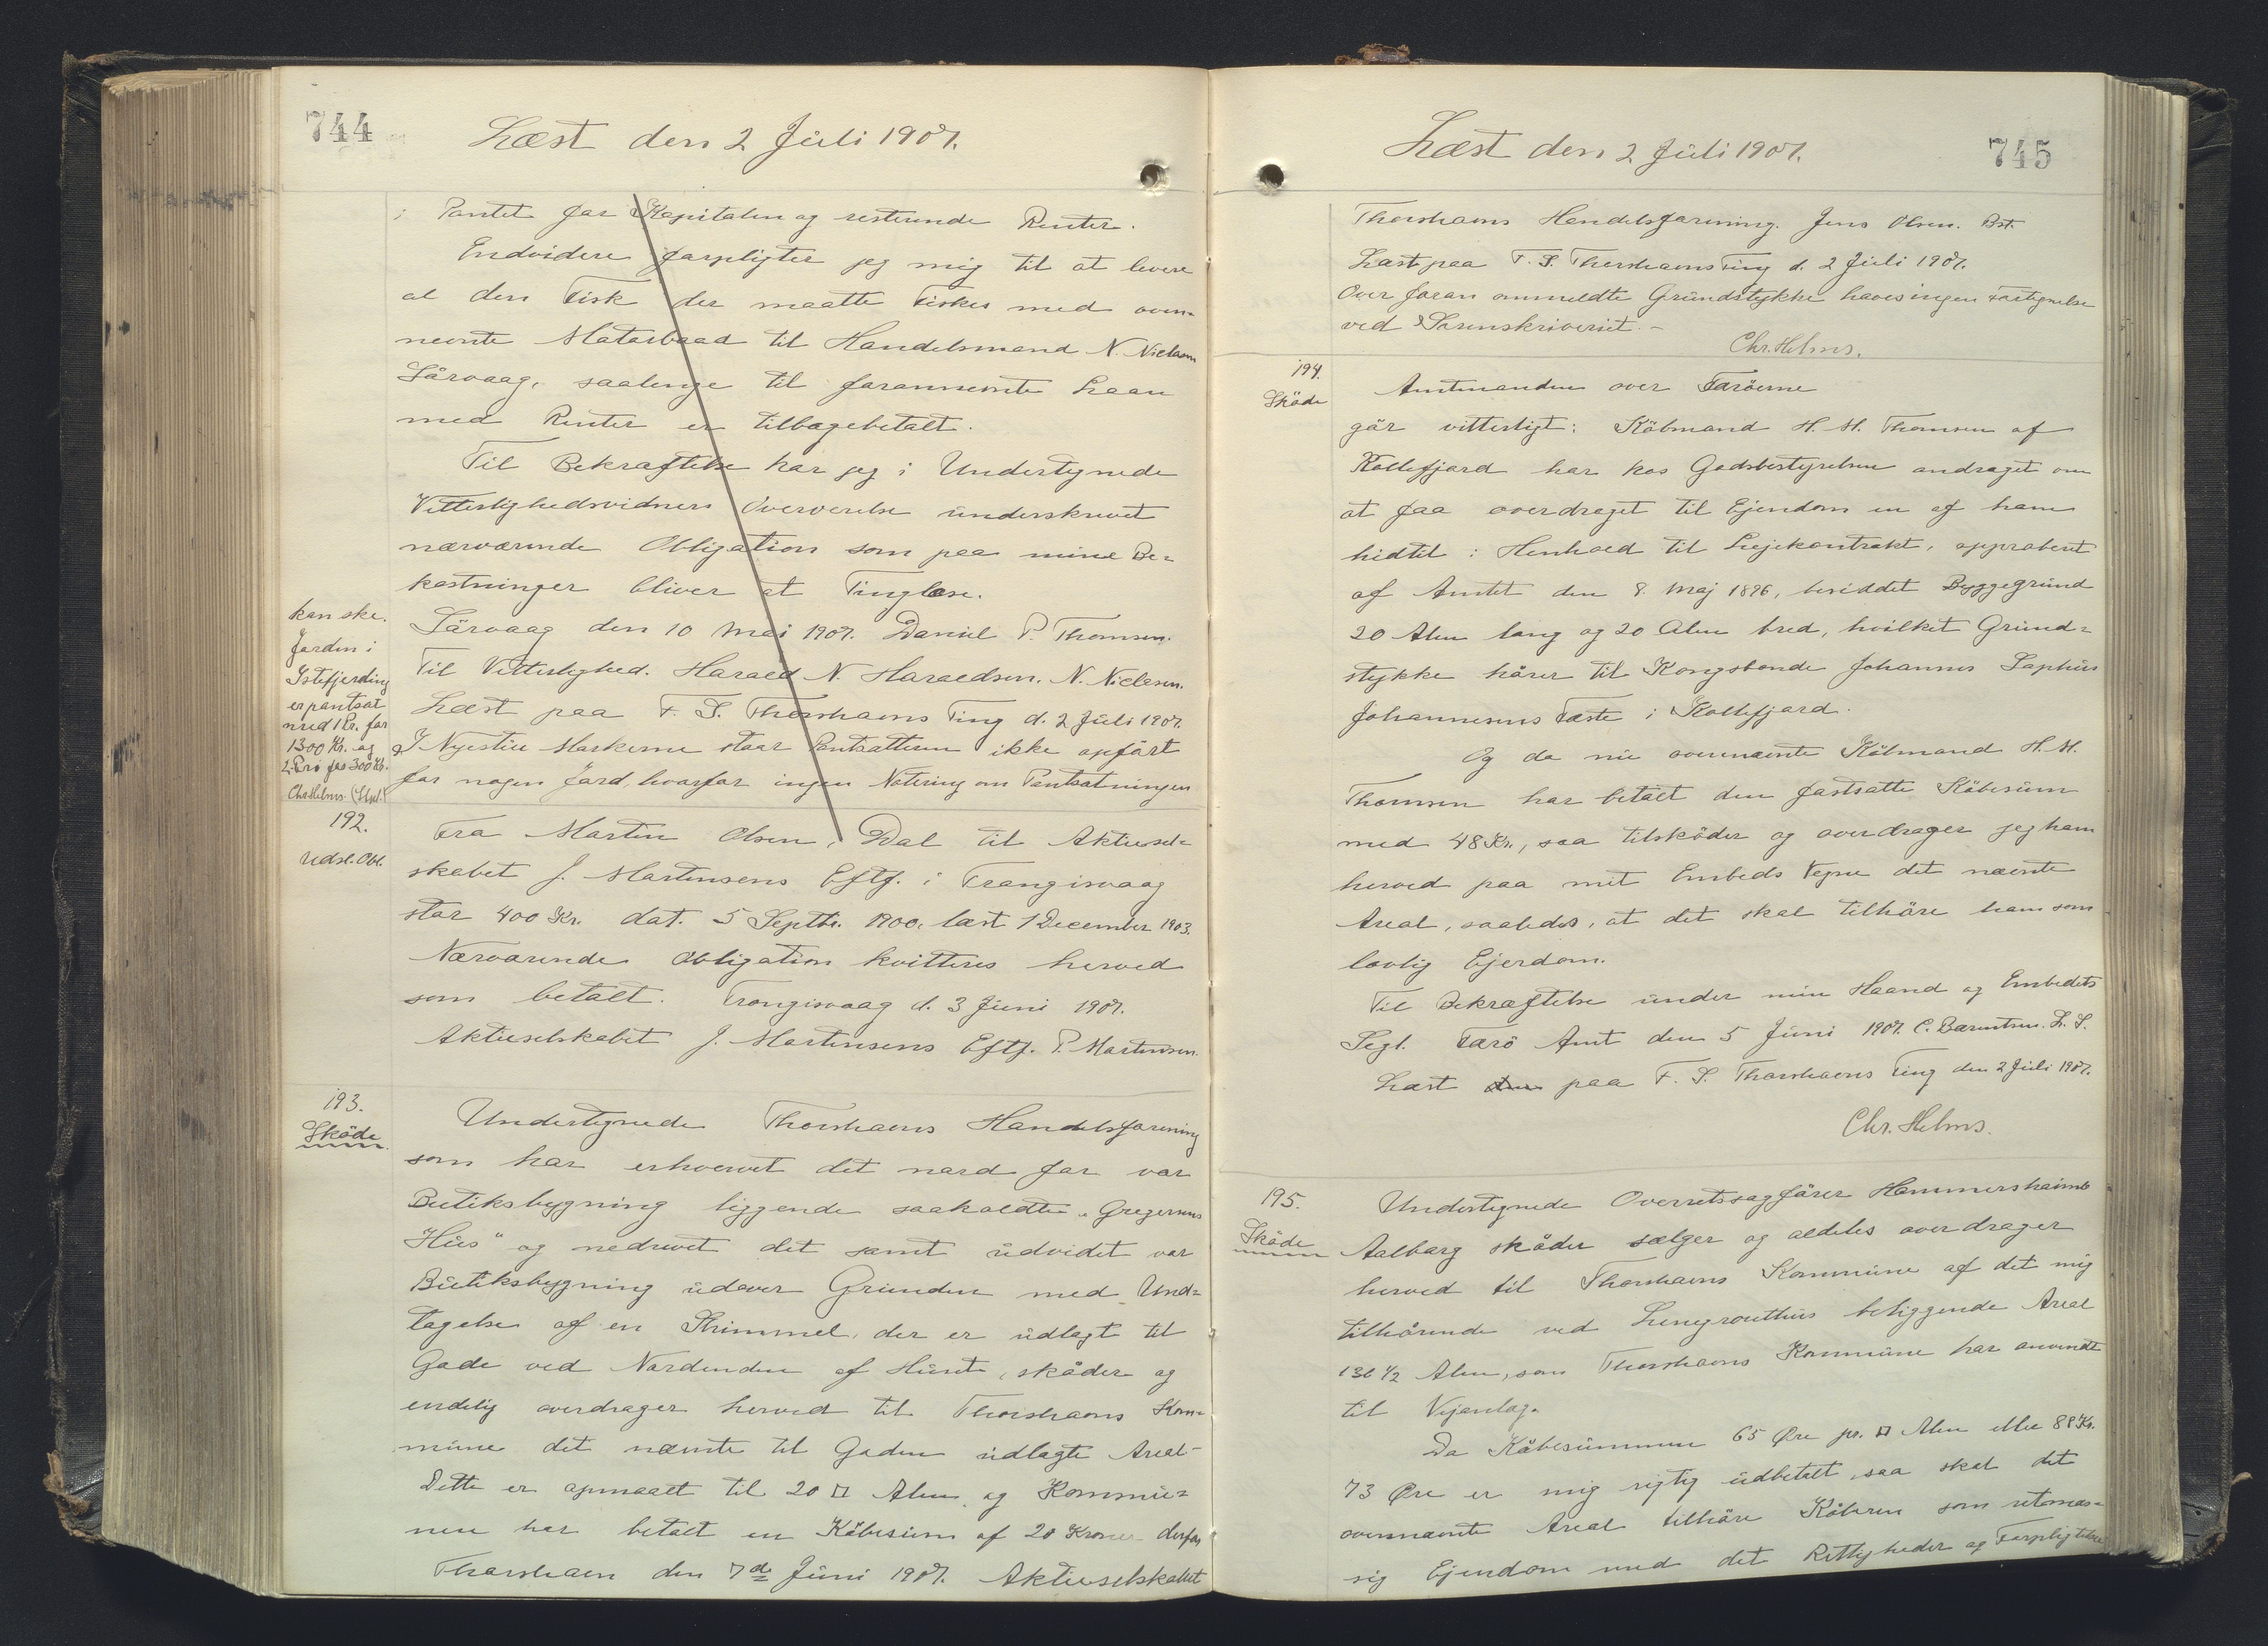 744
Læst den 2 Juli 1907.
i Pantet for Kapitalen og resterende Renter.
Endvidere forpligter jeg mig til at levere
al den Fisk der maatte fiskes med oven-
nevnte Motorbaad til Handelsmand N. Nielsen
Sörvaag, saalenge til forannevnte Laan
med Renter er tilbagebetalt.
Til Bekræftelse har jeg i Undertegnede
Vitterlighedsvidners Oververelse underskrevet
nærværende Obligation som paa mine Be-
kostninger bliver at Tinglæse.
Sörvaag den 10 Mai 1907. Daniel P. Thomsen.
Til Vitterlighed. Harald N. Haraldsen. N. Nielsen.
Læst paa F. S. Thorshavns Ting d. 2 Juli 1907.
I Nyestiu Markerne staar Pantsætteren ikke opfört
for nogen Jord, hvorfor ingen Notering om Pantsætningen
kan ske.
Jorden i
Ystefjerding
er pantsat
med 1 Pr. for
1300 Kr. og
2. Pri for 300 Kr.
Chr. Helms. (Skd.)
192.
Udsl. Obl.
Fra Martin Olsen, Dal til Aktiesel-
skabet J. Mortensens Eftf. i Trangisvaag
stor 400 Kr. dat. 5 Septbr. 1900, læst 1 December 1903.
Nærværende Obligation kvitteres herved
som betalt. Trangisvaag d. 3 Juni 1907.
Aktieselskabet J. Mortensens Eftf. P. Mortensen.
193.
Sköde
Undertegnede Thorshavns Handelsforening
som har erhvervet det nord for vor
Butiksbygning liggende saakaldte "Gregersens
Hus" og nedrevet det samt udvidet vor
Butiksbygning udover Grunden med Und-
tagelse af en Strimmel, der er udlagt til
Gade ved Nordenden af Huset, sköder og
endelig overdrager herved til Thorshavns Kom-
mune det nævnte til Gaden udlagte Areal-
Dette er opmaalt til 20 □ Alen og Kommu-
nen har betalt en Köbesum af 20 Kroner derfor
Thorshavn den 7de Juni 1907. Aktieselskabet
745
Læst den 2 Juli 1907.
Thorshavns Handelsforening. Jens Olsen. Bst.
Læst paa F. S. Thorshavns Ting d. 2 Juli 1907.
Over foran ommeldte Grundstykke haves ingen Fortegnelse
ved Sorenskriveriet.-
Chr. Helms.
194.
Sköde
Amtmanden over Færöerne
gör vitterligt: Köbmand H. M. Thomsen af
Kollefjord har hos Godsbestyrelsen andraget om
at faa overdraget til Ejendom en af ham
hidtil i Henhold til Lejekontrakt, approberet
af Amtet den 8. Maj 1896, besiddet Byggegrund
20 Alen lang og 20 Alen bred, hvilket Grund-
stykke hörer til Kongsbonde Johannes Saphus
Johannesens Fæste i Kollefjord.
Og da nu ovennævnte Köbmand H. M.
Thomsen har betalt den fastsatte Köbesum
med 48 Kr., saa tilsköder og overdrager jeg ham
herved paa mit Embeds Vegne det nævnte
Areal, saaledes, at det skal tilhöre ham som
lovlig Ejendom.
Til Bekræftelse under min Haand og Embedets
Segl. Færö Amt den 5 Juni 1907. C. Bærentsen. L. S.
Læst den paa F. S. Thorshavns Ting den 2 Juli 1907.
Chr. Helms.
195.
Sköde
Undertegnede Overretssagförer Hammershaimb
Aalborg sköder sælger og aldeles overdrager
herved til Thorshavns Kommune af det mig
tilhörende ved beliggende Areal
136 1/2 Alen, som Thorshavns Kommune har anvendt
til Vejanlæg.
Da Köbesummen 65 Øre pr. □ Alen eller 88 Kr.
73 Øre er mig rigtig udbetalt, saa skal det
ovennævnte Areal tilhöre Köberen som retmæs-
sig Ejendom med det Rettigheder og Forpligtelser